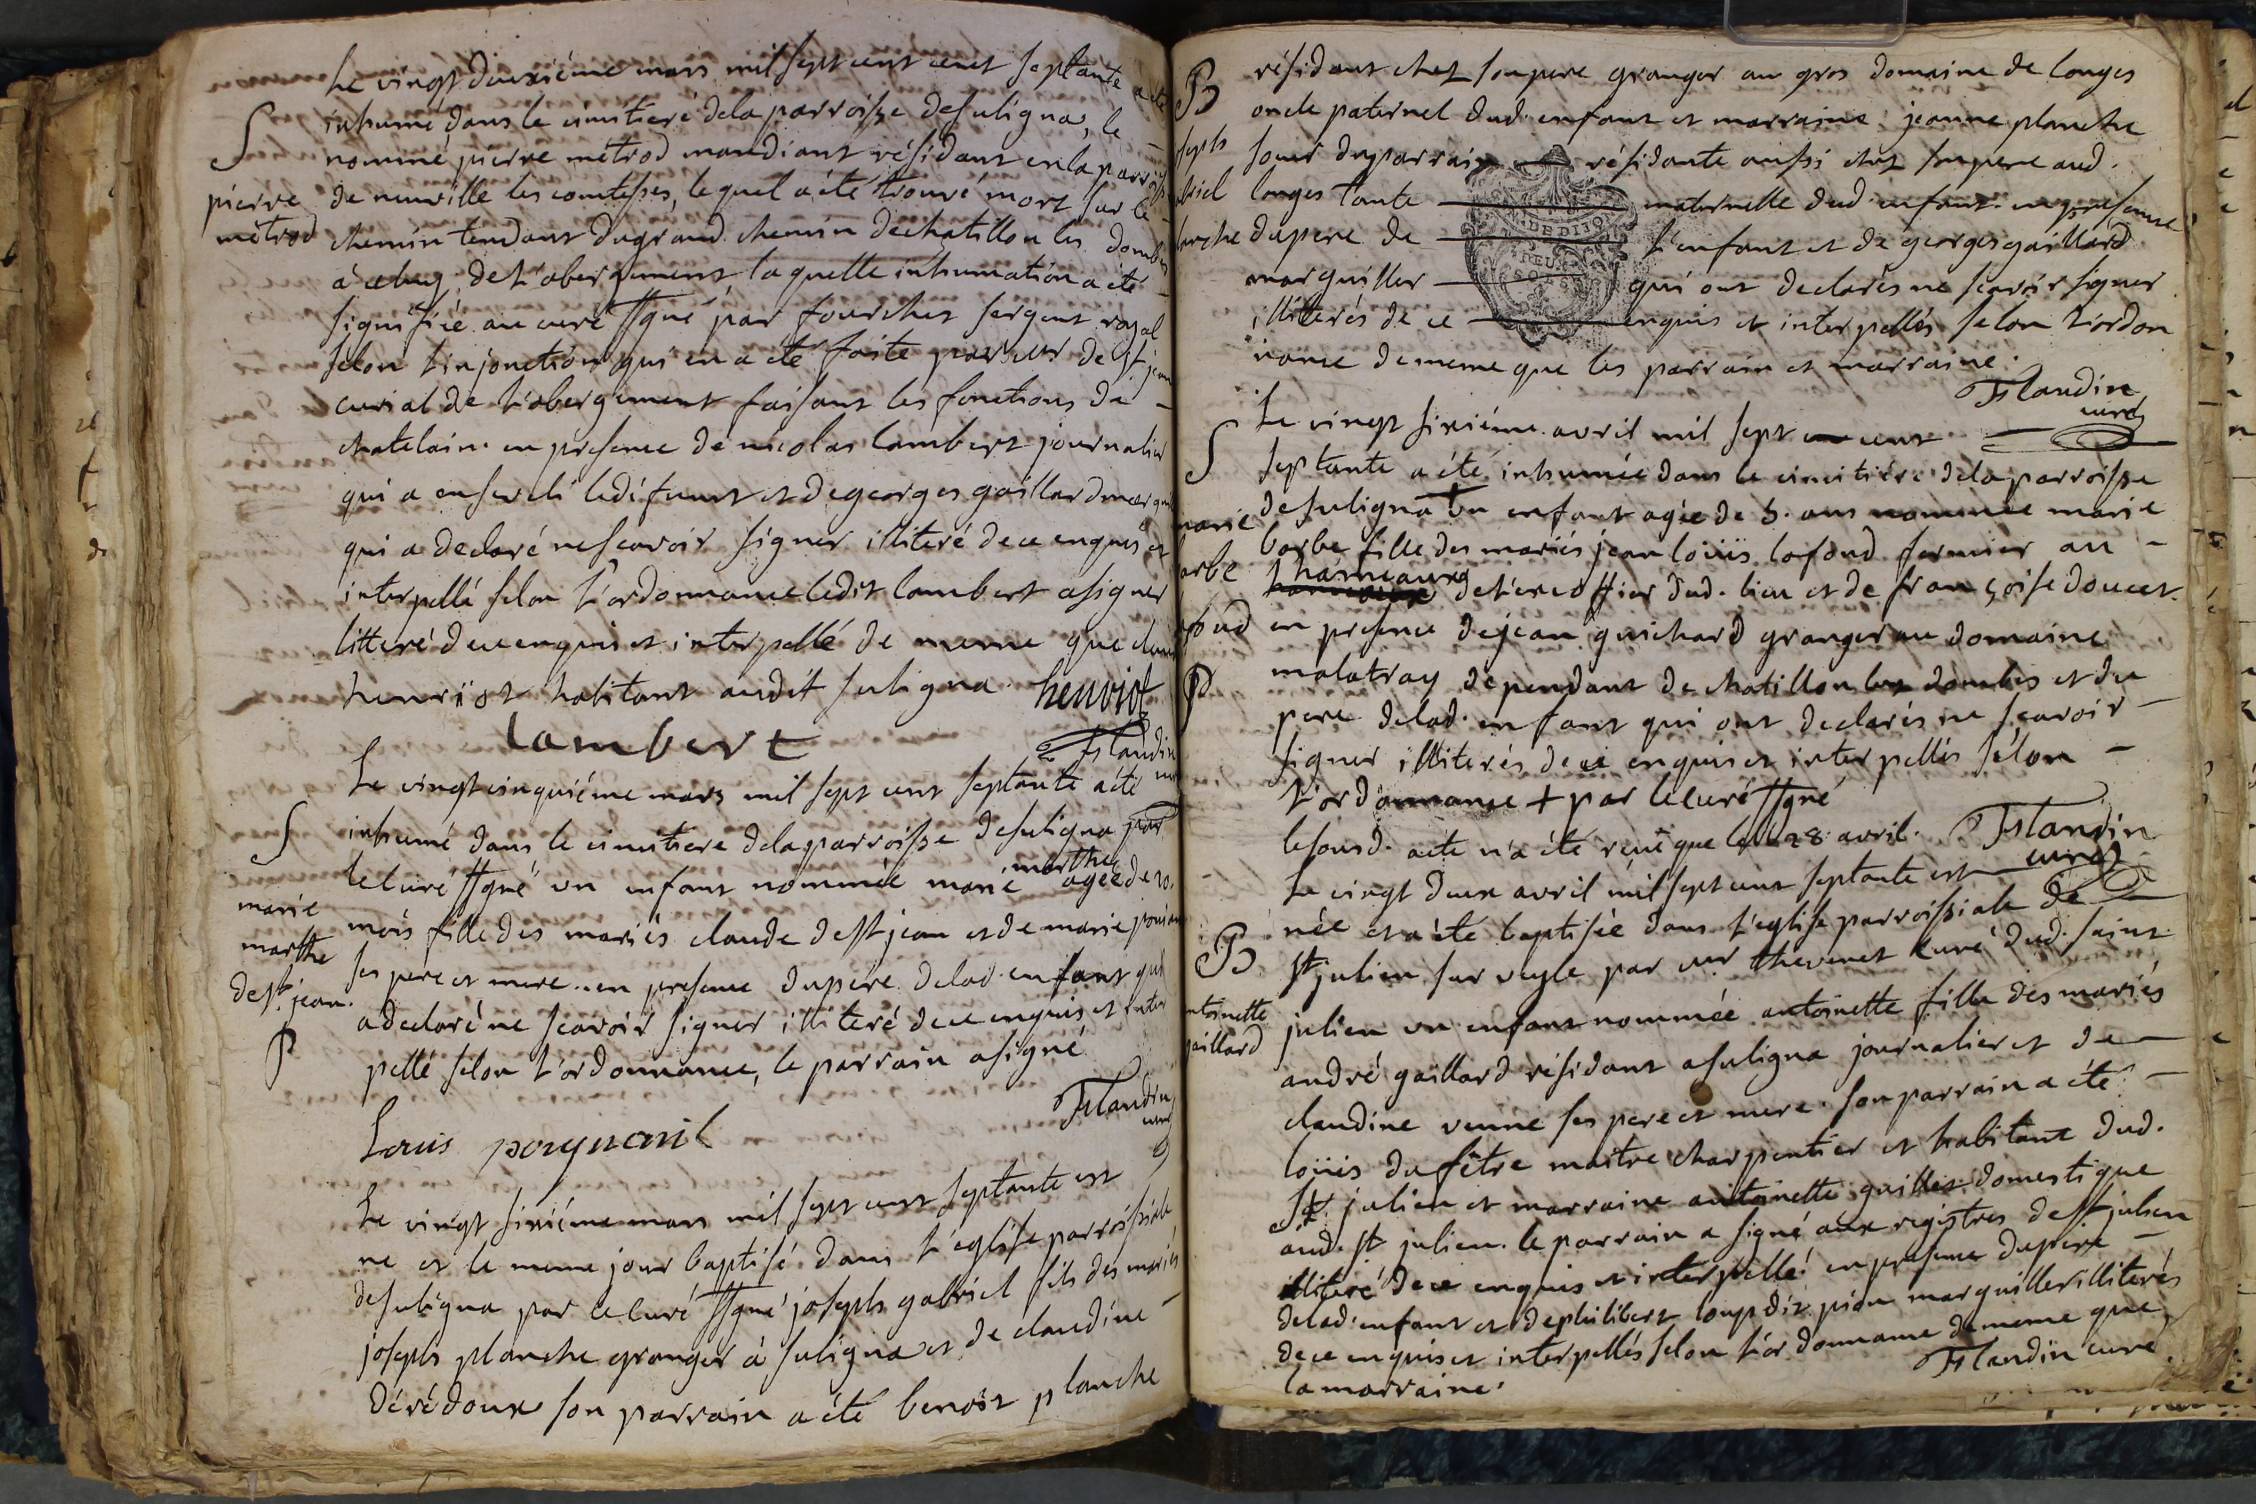 Le vingt deuxiéme mars mil sept cent septante a été
inhumé dans le cimetiere de la parroisse de suligna, le
S
nommé pierre métrod mandiant résidant en la parroiss
pierre
métrod
de neuville les comtesses, lequel a été trouvé mort sur le
chemin tendant du grand chemin de chatillon les dombes
à celuy de l'abergement, laquelle inhumation a été
signifiée au curé ssgné par fourchet sergent royal
selon l'injonction qui en a été faite par de st jean
curial de l'abergement faisant les fonctions de
chatelain. en presence de nicolas lambert journalier
qui a enseveli le défunt et de georges gaillard
qui a declaré ne scavoir signer illiteré de ce enquis et
interpellé selon l'ordonnance ledit lambert a signer
litteré de ce enquis et interpellé de meme que
henriot habitant audit suligna. henriot
lambert
Flandin
Le vingt cinquiéme mars mil sept cent septante a été
S
inhumé dans le cimetiere de la parroisse de suligna par
le curé ssgné un enfant nommée marie marthe agée de 10.
marie
marthe
de st jean.
mois fille des mariés claude de st jean et de marie
ses pere et mere. en presence du pere de lad. enfant qui
a declaré ne scavoir signer illiteré de ce enquis et inter
P
pellé selon l'ordonnance, le parrain a signé
Flandin
curé
Louis
Le vingt sixiéme mars mil sept cent septante est
né et le meme jour baptisé dans l'eglise parroissiale
de suligna par le curé ssgné joseph gabriel fils des mariés
joseph planche granger à suligna et de claudine
dérédoux son parrain a été benoit planche
B
résidant chez son pere granger au gros domaine de longes
oncle paternel dud. enfant et marraine jeanne planche
soeur du parrain résidante aussi chez son pere aud.
longes tante maternelle dud. enfant. en presence
du pere de l'enfant et de georges gaillard
marguiller qui ont declarés ne scavoir signer
illiterés de ce enquis et interpellés selon l'ordon
nance de meme que les parrain et marraine.
Flandin
curé
Le vingt sixiéme avril mil sept cent
S
septante a été inhumée dans le cimetiére de la parroisse
de suligna un enfant agée de 5. ans nommée marie
barbe fille des mariés jean loüis lafond fermier au
hameaux de l'ercossier dud. lieu et de françoise doucet.
en presence de jean guichard granger au domaine
P
malatray dependant de chatillon les dombes et du
pere de lad. enfant qui ont declarés ne scavoir
signer illiterés de ce enquis et interpellés sélon
l'ordonnance + par le curé ssgné
le susd. acte n'a été que le 28 avril. Flandin
curé
Le vingt deux avril mil sept cent septante est
née et a été baptisée dans l'eglise parroissiale de
B
st julien sur veyle par mr thevenet curé dud. saint
julien un enfant nommée antoinette fille des mariés
andré gaillard résidant a suligna journalier et de
claudine venne ses pere et mere. son parrain a été
loüis dufêtre maitre charpentier et habitant dud.
st julien et marraine antoinette guillet domestique
aud. st julien. le parrain a signé aux registres de st julien
illiteré de ce enquis et interpellé en presence du pere
de lad. enfant et de philibert loup dit pion marguiller illiterés
de ce enquis et interpellés selon l'ordonnance de meme que
la marraine. Flandin curé